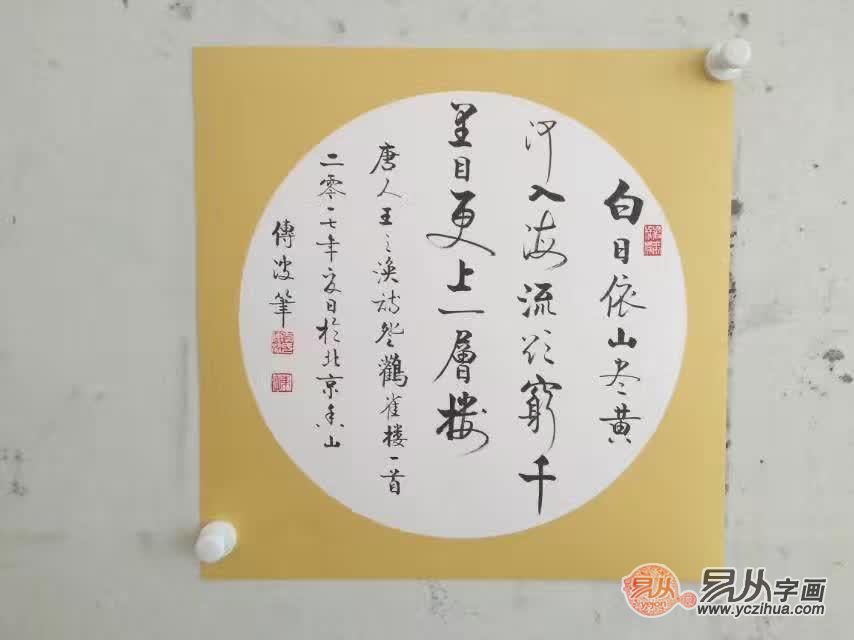 白日依山尽黄
河入海流欲窮千
里目更上一層楼
唐人王之渙诗登鸛雀楼一首
二零一七年夏日於北京香山
傳波筆
易从字画
www.yczihua.com